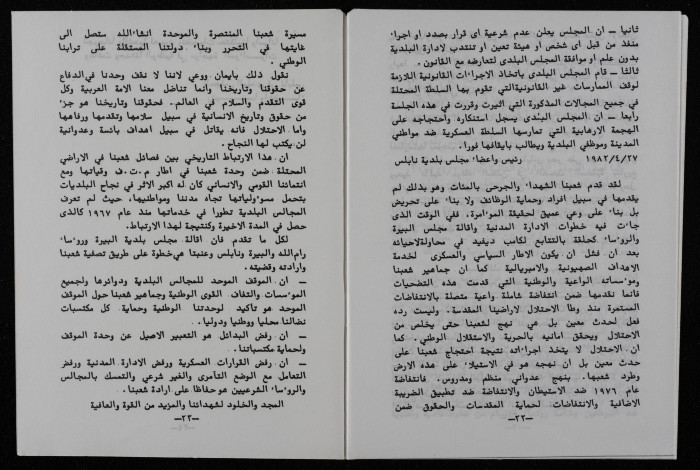 ثانيا — ان المجلس يعلن عدم شرعية اى قرار بصدد او اجراء
منفذ من قبل اى شخص أو هيئة تعين او تنتدب لادارة البلدية
بدون علم او موافقة المجلس البلدى لتعارضه مع القانون .
ثالثا — قام المجلس البلدى باتخاذ الاجراءات القانونية اللازمة
لوقف الممارسات غير القانونيةالتي تقوم بها السلطة المحتلة
في جميع المجالات المذكورة التي اثيرت وقررت في هذه الجلسة
رابعا — ان المجلس البلدى يسجل استنكاره واحتجاجه على
الهجمة الارهابية التي تمارسها السلطة العسكرية ضد مواطني
المدينة وموظفي البلدية ويطالب بايقافها فورا .
١٩٨٢/٤/٢٧ رئيس واعضاء مجلس بلدية نابلس
لقد قدم شعبنا الشهداء والجرحى بالمئات وهو بذلك لم
يقدمها في سبيل افراد وحماية الوظائف ولا بناء على تحريض
بل بناء على وعي عميق لحقيقة الموءامرة، ففي الوقت الذى
جاءت فيه خطوات الادارة المدنية واقالة مجلس البيرة
والروءساء كحلقة بالتتابع لكامب ديفيد في محاولةلاحيائه
بعد ان فشل ان يكون الاطار السياسي والعسكرى لخدمة
الاهداف الصهيونية والامبريالية كما ان جماهير شعبنا
وموءسساته الواعية والوطنية التي قدمت هذه التضحيات
فانما تقدمها ضمن انتفاضة شاملة واعية متصلة بالانتفاضات
المستمرة منذ وطأ الاحتلال لاراضينا المقدسة. وليست رده
فعل لحدث معين بل هي نهج لشعبنا حتى يخلص من
الاحتلال ويحقق امانيه بالحرية والاستقلال الوطني. كما
ان الاحتلال لا يتخذ اجراءاته نتيجة احتجاج شعبنا على
حدث معين بل ان نهجه هو في الاستيلاء على هذه الارض
وطرد شعبها. بنهج عدواني منظم ومدروس. فانتفاضة
عام ١٩٧٦ ضد الاستيطان والانتفاضة ضد تطبيق الضريبة
الاضافية والانتفاضات لحماية المقدسات والحقوق ضمن
—٢٢—
مسيرة شعبنا المنتصرة والموحدة انشاءالله ستصل الى
غايتها في التحرر وبناء دولتنا المستقلة على ترابنا
الوطني .
نقول ذلك بايمان ووعي لاننا لا نقف وحدنا في الدفاع
عن حقوقنا وتاريخنا وانما تناضل معنا الامة العربية وكل
قوى التقدم والسلام في العالم. فحقوقنا وتاريخنا هو جزء
من حقوق وتاريخ الانسانية في سبيل سلامها وتقدمها ورفاهها
واما الاحتلال فانه يقاتل في سبيل اهداف بائسة وعدوانية
لن يكتب لها النجاح .
ان هذا الارتباط التاريخي بين فصائل شعبنا في الاراضي
المحتلة ضمن وحدة شعبنا في اطار م.ت.ف وقياتها ومع
انتمائنا القومي والانساني كان له اكبر الاثر في نجاح البلديات
بتحمل مسوءلياتها تجاه مدننا ومواطنيها، حيث لم تعرف
المجالس البلدية تطورا في خدماتها منذ عام ١٩٦٧ كالذى
حصل في المدة الاخيرة وكنتيجة لهذا الارتباط .
لكل ما تقدم فان اقالة مجلس بلدية البيرة وروءساء
رام الله والبيرة ونابلس وعنبتا هي خطوة على طريق تصفية شعبنا
وارادته وقضيته .
— ان الموقف الموحد للمجالس البلدية ودوائرها ولجميع
الموءسسات والتفاف القوى الوطنية وجماهير شعبنا حول الموقف
الموحد هو تأكيد لوحدتنا الوطنية وحماية كل مكتسبات
نضالنا محليا ووطنيا ودوليا .
— ان رفض البدائل هو التعبير الاصيل عن وحدة الموقف
ولحماية مكتسباتنا .
— ان رفض القرارات العسكرية ورفض الادارة المدنية ورفض
التعامل مع الوضع التآمرى والغير شرعي والتمسك بالمجالس
والروءساء الشرعيين هو حفاظا على ارادة شعبنا .
المجد والخلود لشهدائنا والمزيد من القوة والعافية
—٢٣—